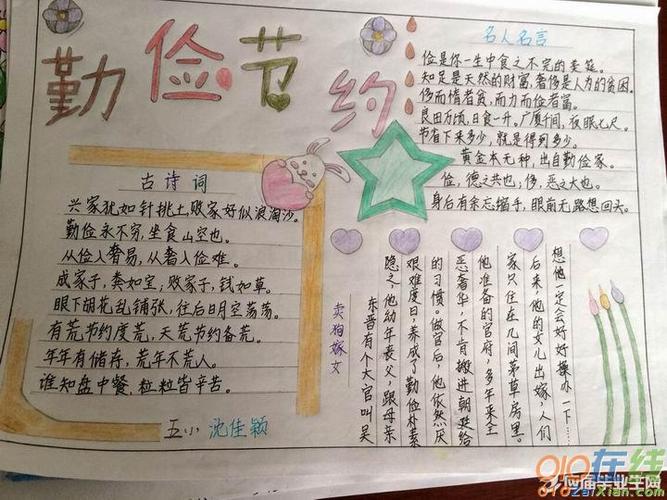 勤俭节约
名人名言
俭是你一生中食之不完的美筵。
知足是天然的财富,奢侈是人为的贫困。
侈而惰者贫,而力而俭者富。
良田万顷,日食一升。广厦千间,夜眠七尺。
节省下来多少,就是得到多少。
黄金本无种,出自勤俭家。
俭,德之共也,侈,恶之大也。
身后有余忘缩手,眼前无路想回头。
古诗词
兴家犹如针挑土,败家好似浪淘沙。
勤俭永不穷,坐食山空也。
从俭入奢易,从奢入俭难。
成家子,粪如宝;败家子,钱如草。
眼下胡花乱铺张,往后日月空荡荡。
有荒节约度荒,无荒节约备荒。
年年有储存,荒年不荒人。
谁知盘中餐,粒粒皆辛苦。
五小 沈佳颖
卖狗嫁女
东晋有个大官叫吴
隐之,他幼年丧父,跟母亲
艰难度日,养成了勤俭朴素
的习惯。做官后,他依然厌
恶奢华,不肯搬进朝廷给
他准备的官府,多年来全
家只住在几间茅草房里。
后来,他的女儿出嫁,人们
想他一定会好好操办一下……
010在线
应届毕业生网
010zaixian.com